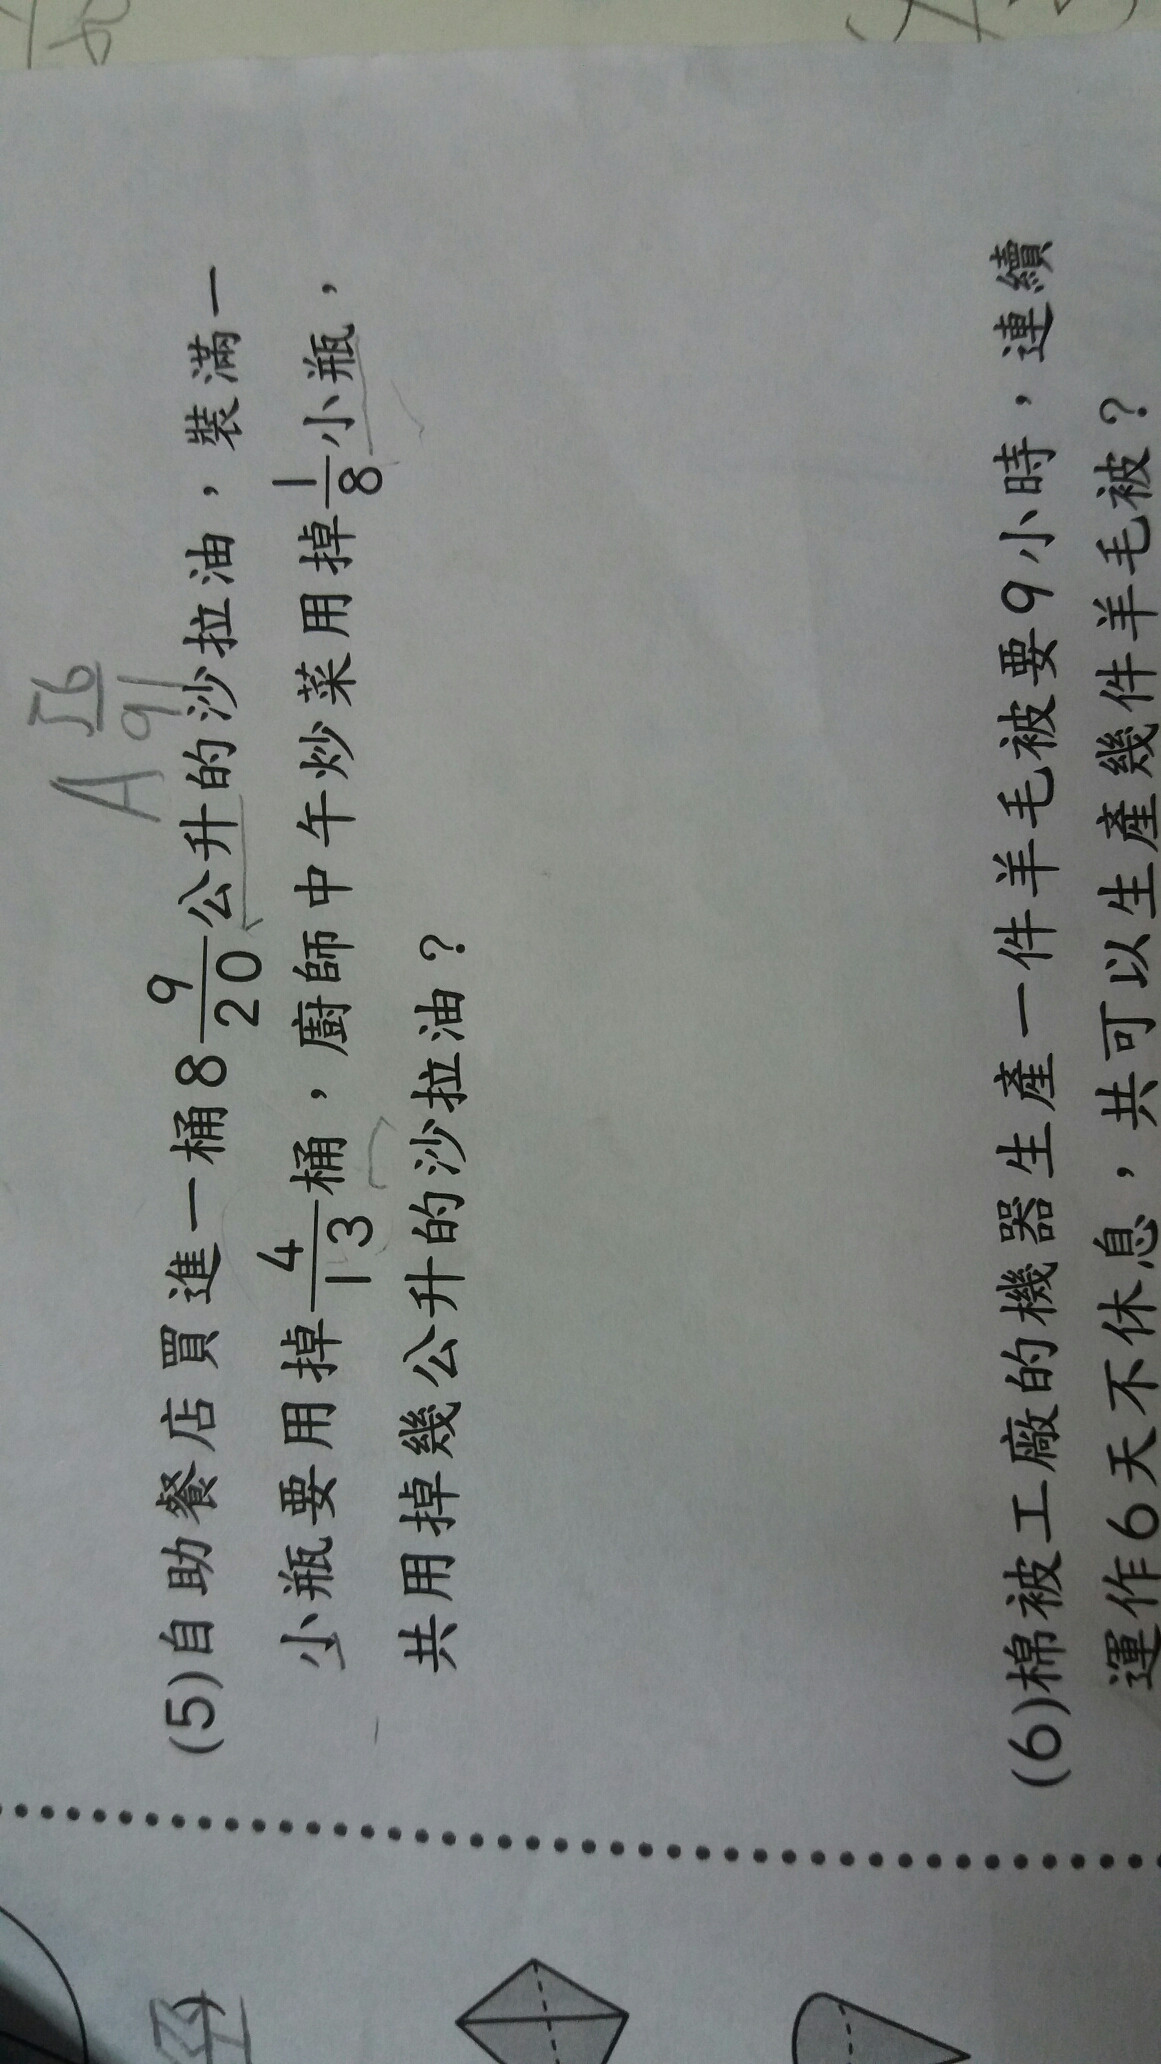 (5)自助餐店買進一桶8 9/20公升的沙拉油，裝滿一
小瓶要用掉4/13桶，廚師中午炒菜用掉1/8小瓶，
共用掉幾公升的沙拉油？
(6)棉被工廠的機器生產一件羊毛被要9小時，連續
運作6天不休息，共可以生產幾件羊毛被？